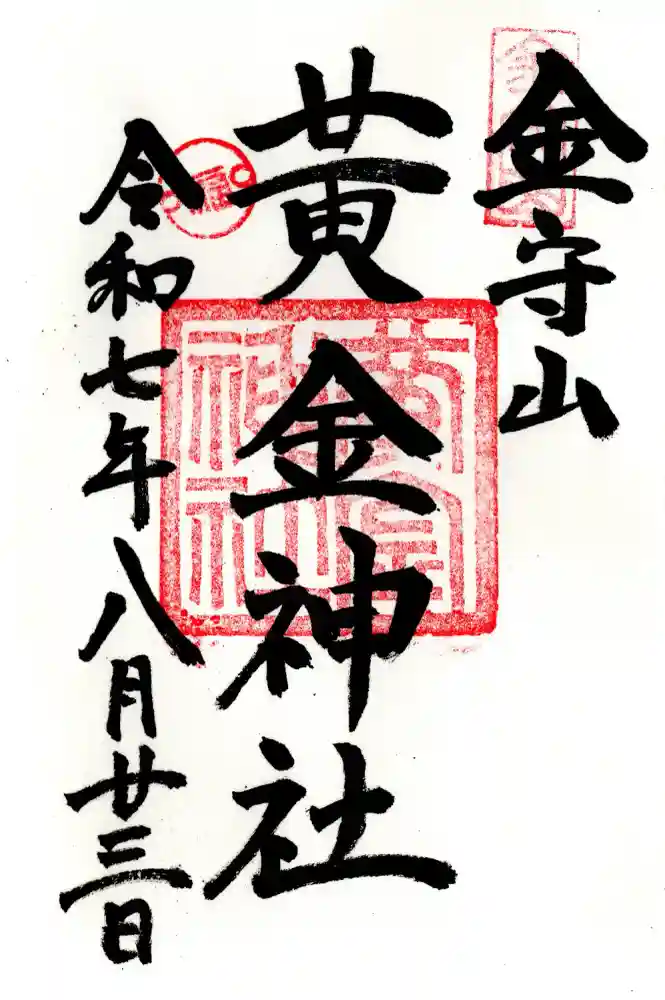 金守山
黄金神社
令和七年八月廿三日